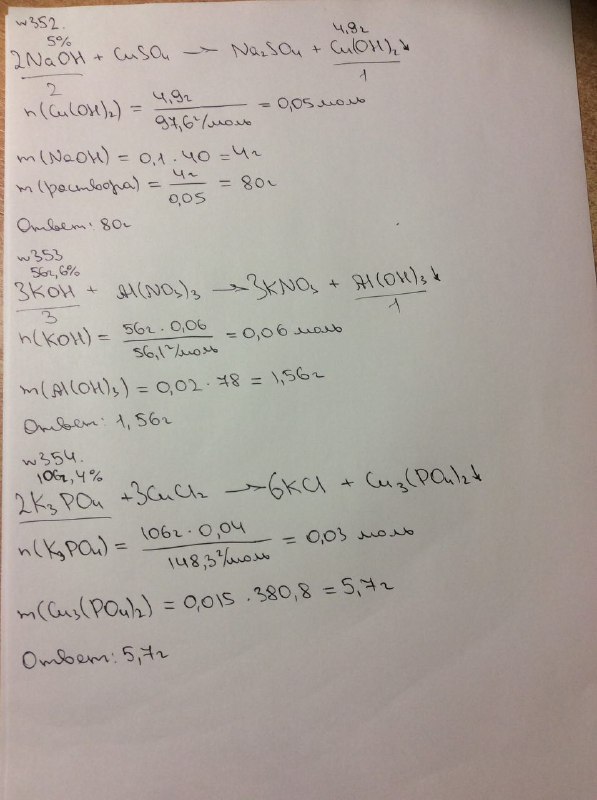 №352.
5% 4,9г
2NaOH + CuSO₄ → Na₂SO₄ + Cu(OH)₂↓
2 1
n(Cu(OH)₂) = 4,9г / 97,6г/моль = 0,05 моль
m(NaOH) = 0,1 · 40 = 4г
m(раствора) = 4г / 0,05 = 80г
Ответ: 80г
№353
56г, 6%
3KOH + Al(NO₃)₃ → 3KNO₃ + Al(OH)₃↓
3 1
n(KOH) = 56г · 0,06 / 56,1г/моль = 0,06 моль
m(Al(OH)₃) = 0,02 · 78 = 1,56г
Ответ: 1,56г
№354.
106г, 4%
2K₃PO₄ + 3CuCl₂ → 6KCl + Cu₃(PO₄)₂↓
n(K₃PO₄) = 106г · 0,04 / 148,3г/моль = 0,03 моль
m(Cu₃(PO₄)₂) = 0,015 · 380,8 = 5,7г
Ответ: 5,7г